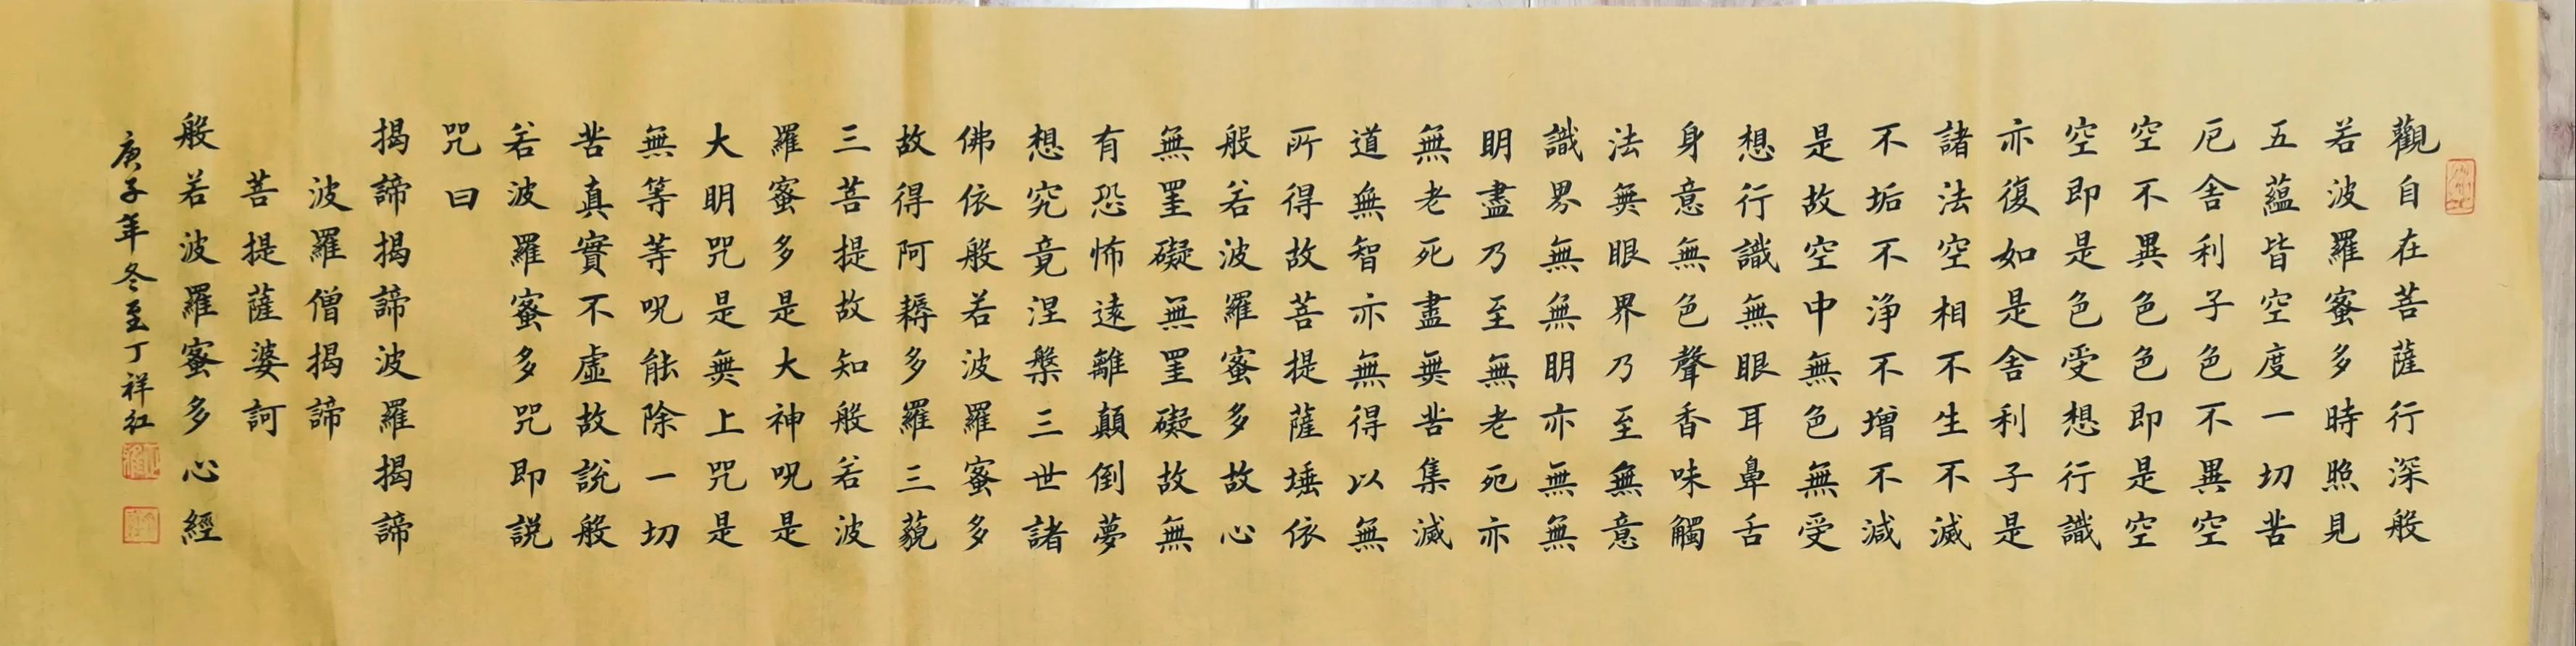 觀自在菩薩行深般
若波羅蜜多時照見
五蘊皆空度一切苦
厄舍利子色不異空
空不異色色即是空
空即是色受想行識
亦復如是舍利子是
諸法空相不生不滅
不垢不淨不增不減
是故空中無色無受
想行識無眼耳鼻舌
身意無色聲香味觸
法無眼界乃至無意
識界無無明亦無無
明盡乃至無老死亦
無老死盡無苦集滅
道無智亦無得以無
所得故菩提薩埵依
般若波羅蜜多故心
無罣礙無罣礙故無
有恐怖遠離顛倒夢
想究竟涅槃三世諸
佛依般若波羅蜜多
故得阿耨多羅三藐
三菩提故知般若波
羅蜜多是大神呪是
大明咒是無上咒是
無等等呪能除一切
苦真實不虛故說般
若波羅蜜多咒即説
咒曰
揭諦揭諦波羅揭諦
波羅僧揭諦
菩提薩婆訶
般若波羅蜜多心經
庚子年冬至丁祥红